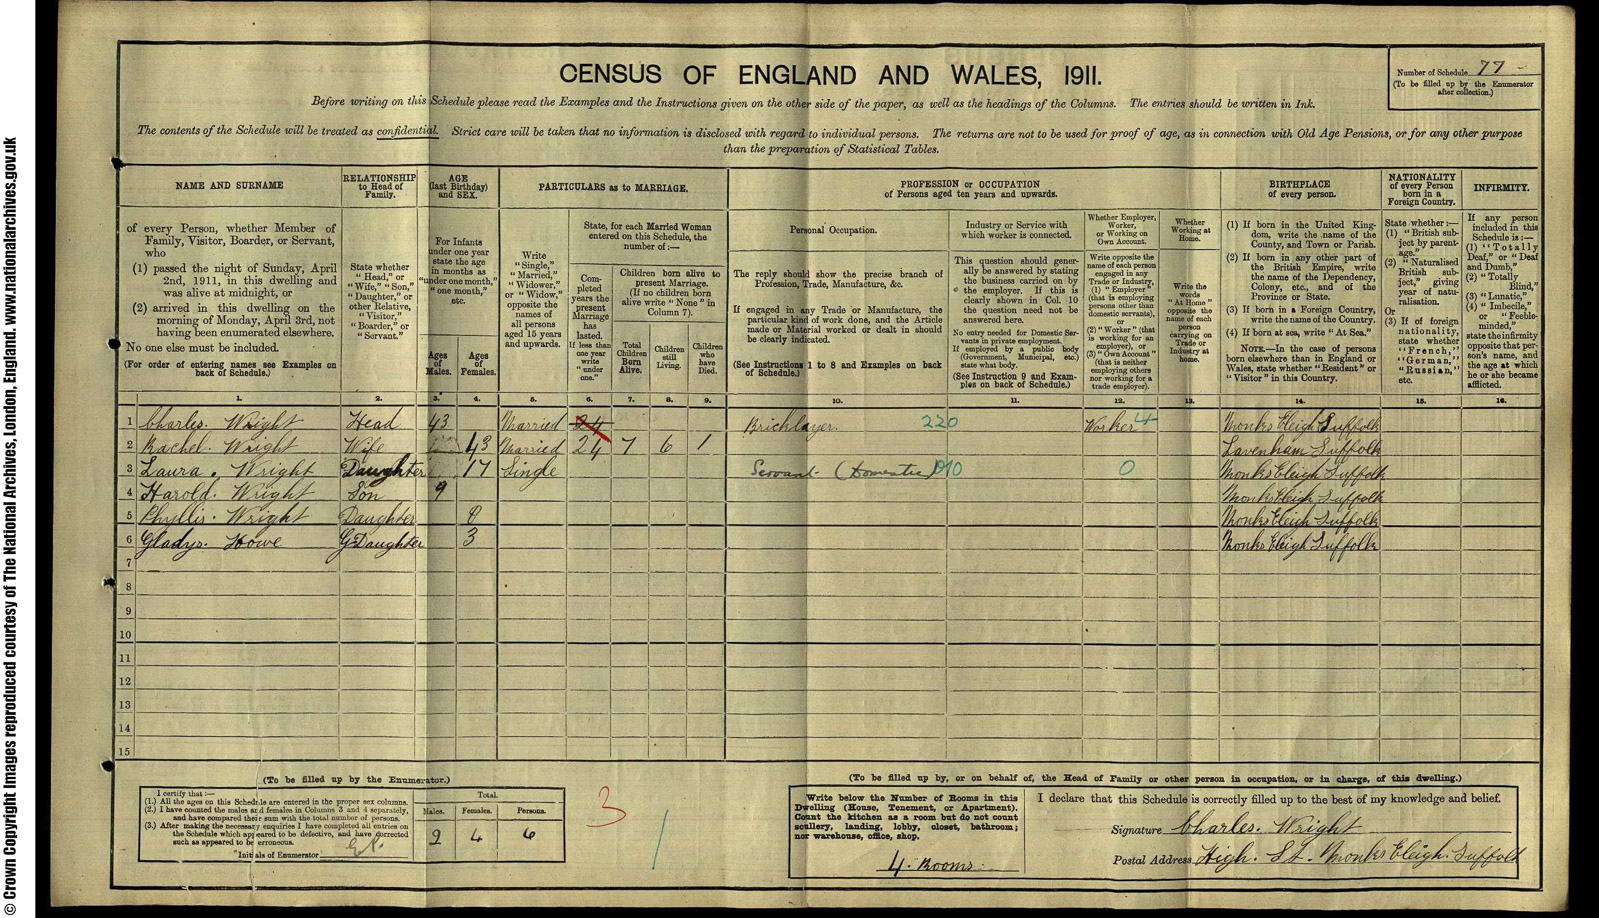 CENSUS OF ENGLAND AND WALES, 1911.
Number of Schedule 77
(To be filled up by the Enumerator after collection.)
Before writing on this Schedule please read the Examples and the Instructions given on the other side of the paper, as well as the headings of the Columns. The entries should be written in Ink.
The contents of the Schedule will be treated as confidential. Strict care will be taken that no information is disclosed with regard to individual persons. The returns are not to be used for proof of age, as in connection with Old Age Pensions, or for any other purpose
than the preparation of Statistical Tables.
NAME AND SURNAME
of every Person, whether Member of
Family, Visitor, Boarder, or Servant,
who
(1) passed the night of Sunday, April
2nd, 1911, in this dwelling and
was alive at midnight, or
(2) arrived in this dwelling on the
morning of Monday, April 3rd, not
having been enumerated elsewhere.
No one else must be included.
(For order of entering names see Examples on
back of Schedule.)
RELATIONSHIP
to Head of
Family.
State whether
"Head," or
"Wife," "Son,"
"Daughter," or
other Relative,
"Visitor,"
"Boarder," or
"Servant."
AGE
(last Birthday)
and SEX.
For Infants
under one year
state the age
in months as
"under one month,"
"one month,"
etc.
Ages
of
Males.
Ages
of
Females.
PARTICULARS as to MARRIAGE.
Write
"Single,"
"Married,"
"Widower,"
or "Widow,"
opposite the
names of
all persons
aged 15 years
and upwards.
State, for each Married Woman
entered on this Schedule, the
number of:—
Completed
years the
present
Marriage
has
lasted.
If less than
one year
write
"under
one."
Children born alive to
present Marriage.
(If no children born
alive write "None" in
Column 7).
Total
Children
Born
Alive.
Children
still
Living.
Children
who
have
Died.
PROFESSION or OCCUPATION
of Persons aged ten years and upwards.
Personal Occupation.
The reply should show the precise branch of
Profession, Trade, Manufacture, &c.
If engaged in any Trade or Manufacture, the
particular kind of work done, and the Article
made or Material worked or dealt in should
be clearly indicated.
(See Instructions 1 to 8 and Examples on back
of Schedule.)
Industry or Service with
which worker is connected.
This question should generally
be answered by stating
the business carried on by
the employer. If this is
clearly shown in Col. 10
the question need not be
answered here.
No entry needed for Domestic Servants
in private employment.
If employed by a public body
(Government, Municipal, etc.)
state what body.
(See Instruction 9 and Examples
on back of Schedule.)
Whether Employer,
Worker,
or Working on
Own Account.
Write opposite the
name of each person
engaged in any
Trade or Industry,
(1) "Employer"
(that is employing
persons other than
domestic servants),
or
(2) "Worker" (that
is working for an
employer), or
(3) "Own Account"
(that is neither
employing others
nor working for a
trade employer).
Whether
Working at
Home.
Write the
words
"At Home"
opposite the
name of each
person
carrying on
Trade or
Industry at
home.
BIRTHPLACE
of every person.
(1) If born in the United Kingdom,
write the name of the
County, and Town or Parish.
(2) If born in any other part of
the British Empire, write
the name of the Dependency,
Colony, etc., and of the
Province or State.
(3) If born in a Foreign Country,
write the name of the Country.
(4) If born at sea, write "At Sea."
NOTE.—In the case of persons
born elsewhere than in England or
Wales, state whether "Resident" or
"Visitor" in this Country.
NATIONALITY
of every Person
born in a
Foreign Country.
State whether:—
(1) "British subject
by parentage."
(2) "Naturalised
British subject,"
giving
year of naturalisation.
Or
(3) If of foreign
nationality,
state whether
"French,"
"German,"
"Russian,"
etc.
INFIRMITY.
If any person
included in this
Schedule is:—
(1) "Totally
Deaf," or "Deaf
and Dumb,"
(2) "Totally
Blind,"
(3) "Lunatic,"
(4) "Imbecile,"
or "Feeble-minded,"
state the infirmity
opposite that person's
name, and
the age at which
he or she became
afflicted.
1. 2. 3. 4. 5. 6. 7. 8. 9. 10. 11. 12. 13. 14. 15. 16.
1 Charles. Wright Head 43 Married 24 Bricklayer. 220 Worker 4 Monks Eleigh Suffolk
2 Rachel. Wright Wife 43 Married 24 7 6 1 Lavenham Suffolk
3 Laura. Wright Daughter 17 Single Servant (Domestic) 0 Monks Eleigh Suffolk
4 Harold. Wright Son 9 Monks Eleigh Suffolk
5 Phyllis. Wright Daughter 8 Monks Eleigh Suffolk
6 Gladys. Howe GDaughter 3 Monks Eleigh Suffolk
7
8
9
10
11
12
13
14
15
(To be filled up by the Enumerator.)
I certify that:—
(1.) All the ages on this Schedule are entered in the proper sex columns.
(2.) I have counted the males and females in Columns 3 and 4 separately,
and have compared their sum with the total number of persons.
(3.) After making the necessary enquiries I have completed all entries on
the Schedule which appeared to be defective, and have corrected
such as appeared to be erroneous.
Initials of Enumerator
Total.
Males. Females. Persons.
2 4 6
3
1
(To be filled up by, or on behalf of, the Head of Family or other person in occupation, or in charge, of this dwelling.)
Write below the Number of Rooms in this
Dwelling (House, Tenement, or Apartment).
Count the kitchen as a room but do not count
scullery, landing, lobby, closet, bathroom;
nor warehouse, office, shop.
4. Rooms.
I declare that this Schedule is correctly filled up to the best of my knowledge and belief.
Signature Charles. Wright
Postal Address High. St. Monks Eleigh. Suffolk
© Crown Copyright Images reproduced courtesy of The National Archives, London, England. www.nationalarchives.gov.uk